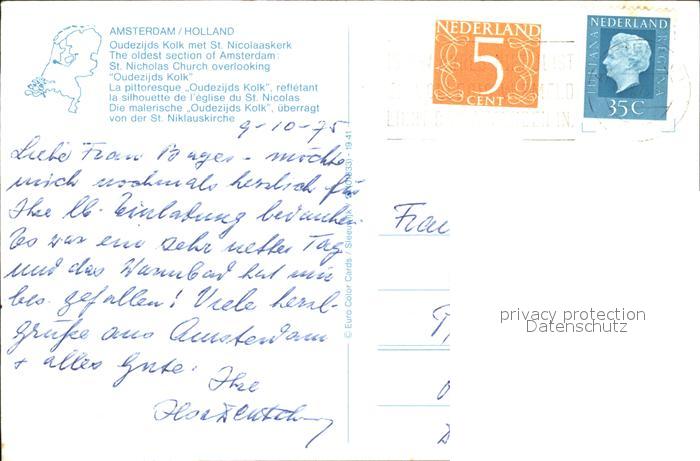 AMSTERDAM / HOLLAND
Oudezijds Kolk met St. Nicolaaskerk
The oldest section of Amsterdam:
St. Nicholas Church overlooking
"Oudezijds Kolk"
La pittoresque „Oudezijds Kolk", reflétant
la silhouette de l'église du St. Nicolas
Die malerische „Oudezijds Kolk", überragt
von der St. Niklauskirche
9-10-75
Liebe Frau - möchte
mich nochmals herzlich für
Ihre lb. Einladung bedanken.
Es war ein sehr netter Tag
und das Warmbad hat mir
bes. gefallen! Viele herzl.
grüße aus Amsterdam
+ alles Gute.
Ihre
© Euro Color Cards / Sleeuwijk
NEDERLAND
5
CENT
NEDERLAND
JULIANA
REGINA
35 C
Frau
privacy protection
Datenschutz